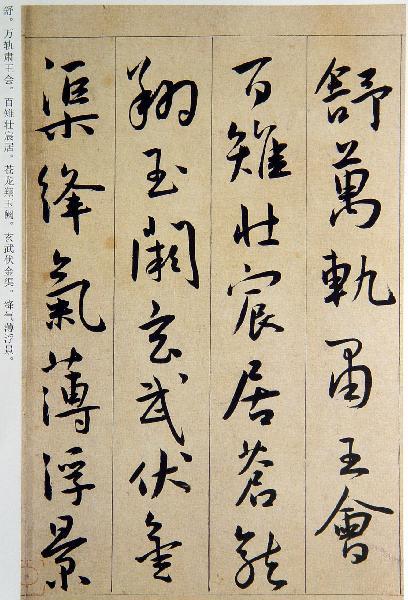 舒萬軌肅王會
百雉壮宸居蒼龍
翔玉闕玄武伏金
渠絳氣薄浮景
舒。万轨肃王会。百雉壮宸居。苍龙翔玉阙。玄武伏金渠。绛气薄浮景。